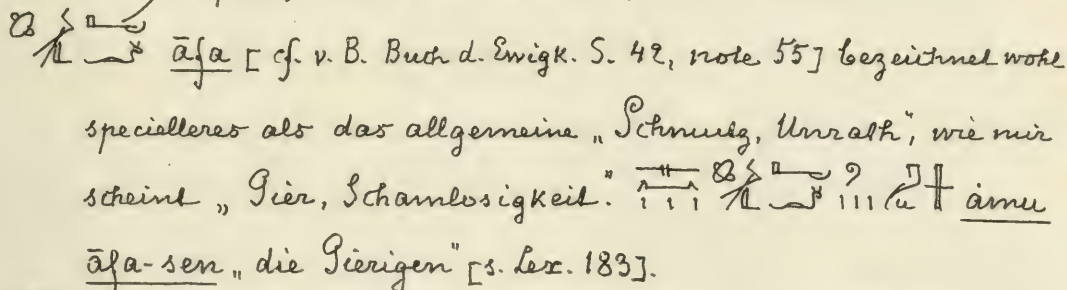 āfa [cf. v. B. Buch d. Ewigk. S. 42, note 55] bezeichnet wohl
specielleres als das allgemeine „Schmutz, Unrath", wie mir
scheint „Gier, Schamlosigkeit." āmu
āfa-sen „die Gierigen" [s. Lex. 183].